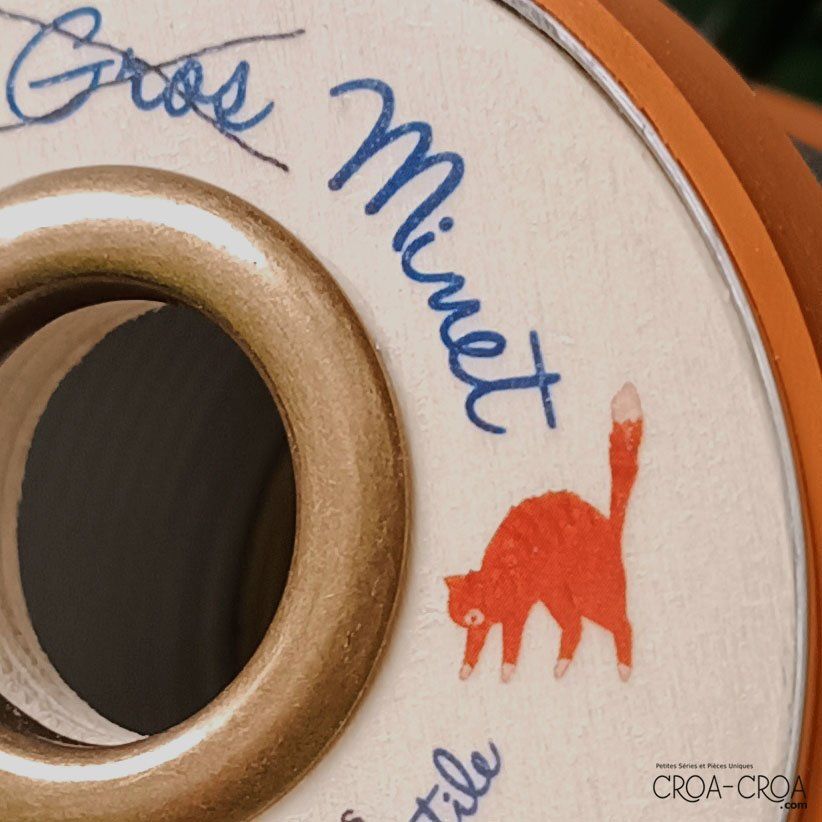 Gros Minet
Petites Séries et Pièces Uniques
CROA-CROA
.com